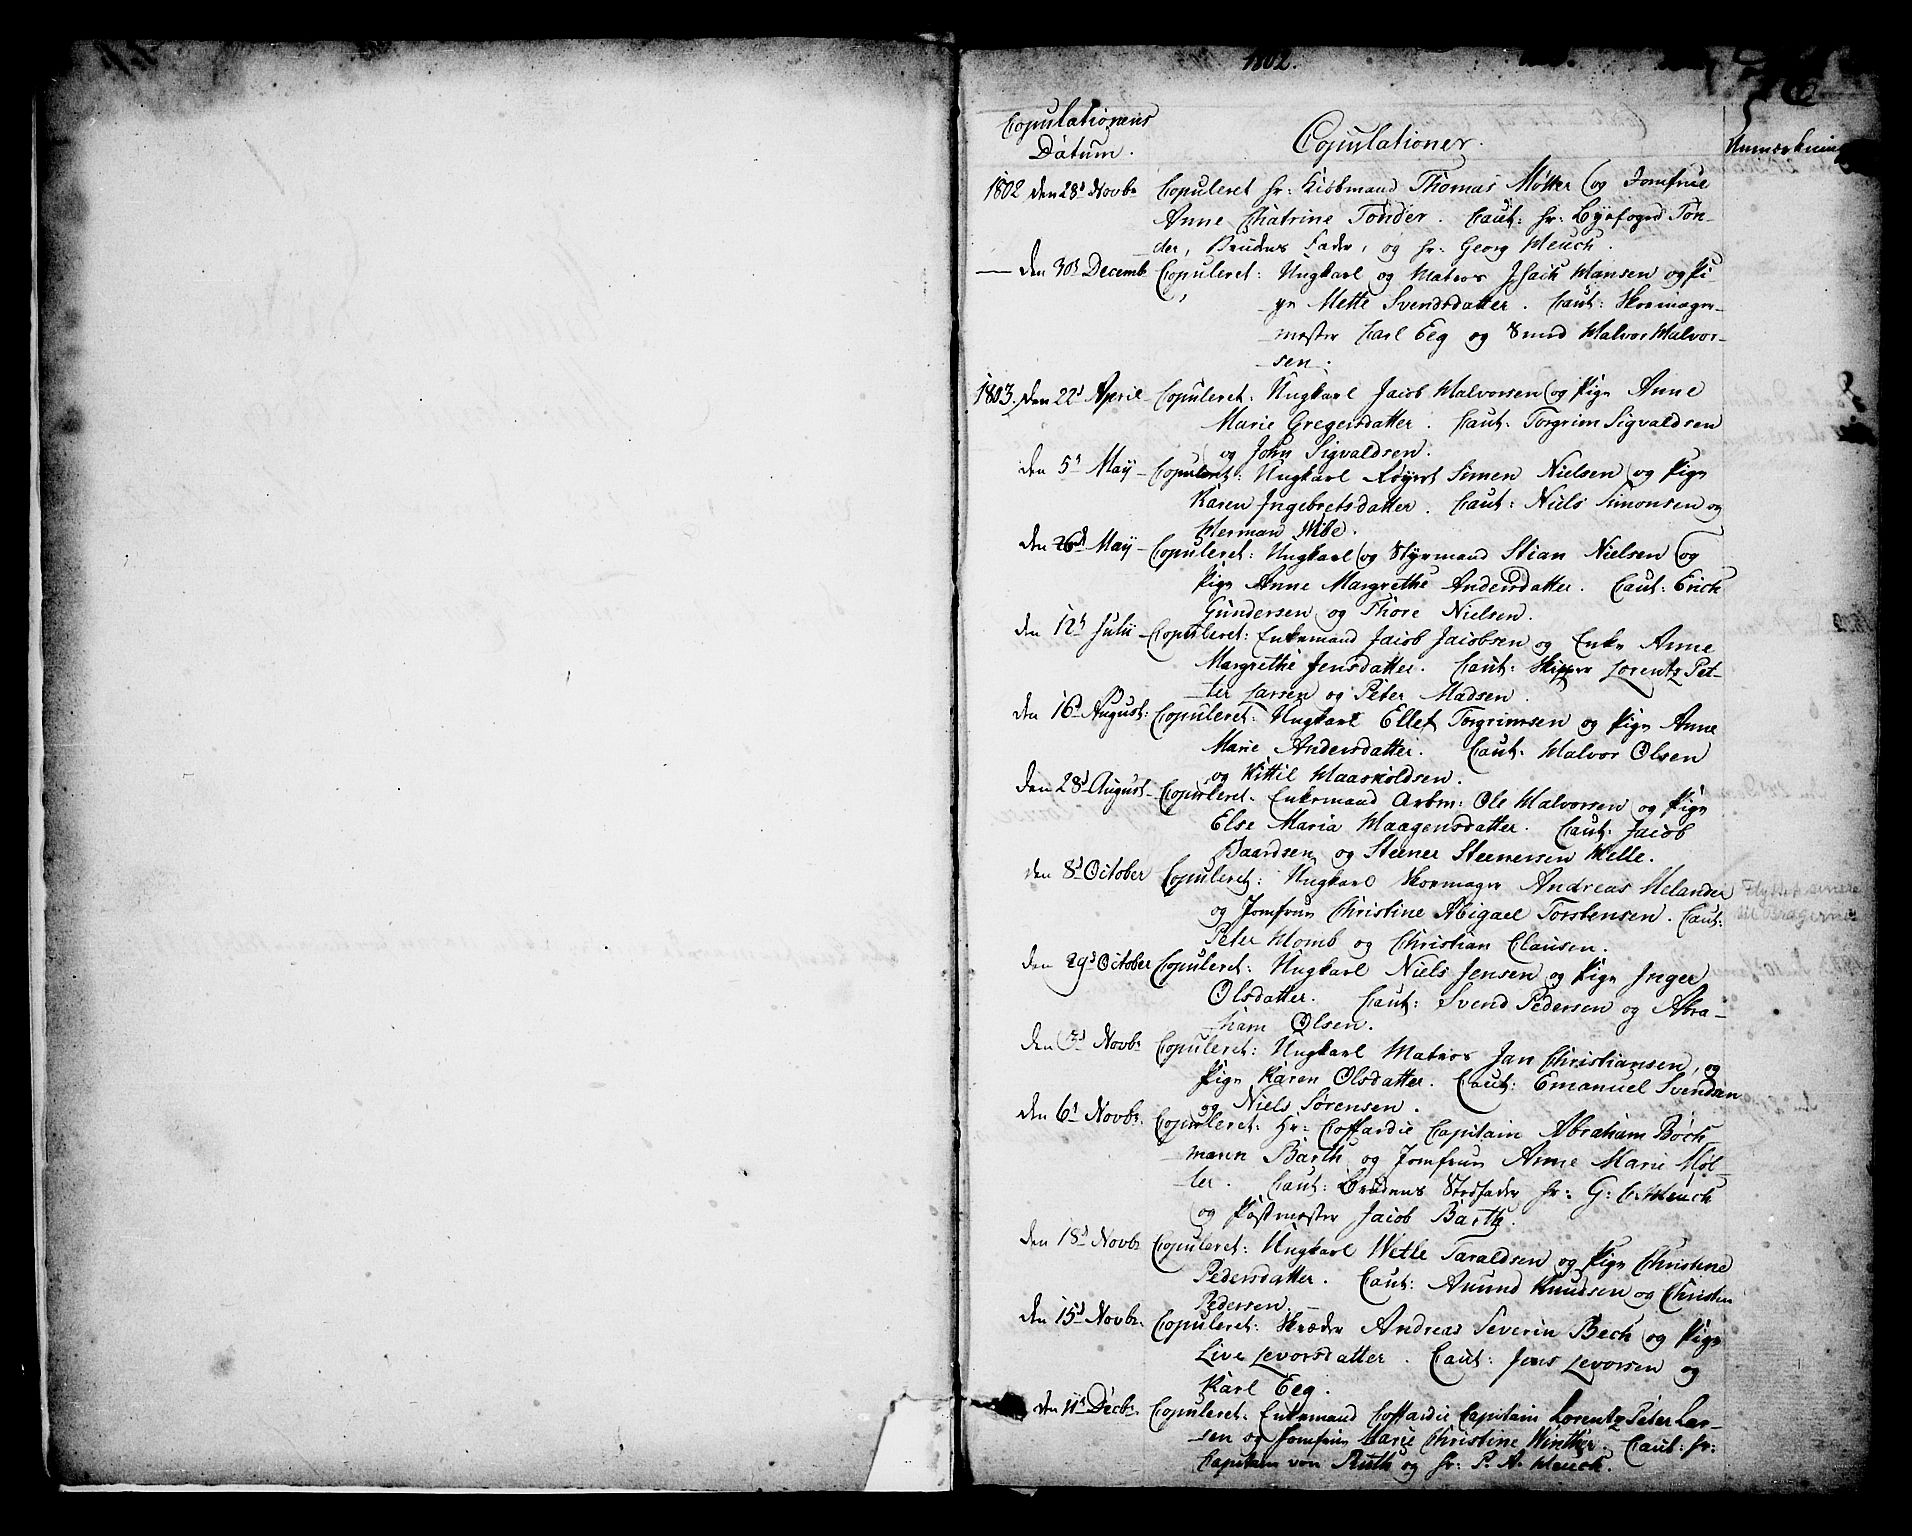 1802.
Copulationens
Datum.
Copulationer.
Anmærkning
1802 den 28d Novbr Copuleret Hr: Kiöbmand Thomas Møller og Jomfrue
Anne Chatrine Tønder. Caut: Hr: Byefoged Tøn-
der, Brudens Fader, og Hr: Georg Heuch.
— den 30d Decemb Copuleret: Ungkarl og Matros Isach Hansen og Pi-
ge Mette Svendsdatter. Caut: Skomager-
mester Carl Eeg og Smed Halvor Halvor-
sen.
1803. den 22d April Copuleret: Ungkarl Jacob Halvorsen og Pige Anne
Marie Gregersdatter. Caut: Torgrim Sigvaldsen
og John Sigvaldsen.
den 5t May Copuleret: Ungkarl Simen Nielsen og Pige
Karen Ingebretsdatter. Caut: Niels Simonsen og
Herman Wibe.
den 26d May Copuleret: Ungkarl og Styrmand Stian Nielsen og
Pige Anne Margrethe Andersdatter. Caut: Erich
Gundersen og Thore Nielsen.
den 12t Julii Copuleret: Enkemand Jacob Jacobsen og Enke Anne
Margrethe Jensdatter. Caut: Skipper Lorentz Pet-
ter Larsen og Peter Madsen.
den 16d August: Copuleret: Ungkarl Ellef Torgrimsen og Pige Anne
Marie Andersdatter. Caut: Halvor Olsen
og Kittil Haarkoldsen.
den 28d August Copuleret: Enkemand Arbm: Ole Halvorsen og Pige
Else Maria Haagensdatter. Caut: Jacob
Baardsen og Steener Steenersen Kelle.
den 8d October Copuleret: Ungkarl Skomager Andreas Melander
og Jomfrue Christine Abigael Torstensen. Caut:
Peter Homb og Christian Clausen.
den 29d October Copuleret: Ungkarl Niels Jensen og Pige Inger
Olsdatter. Caut: Svend Pedersen og Abra-
ham Olsen.
den 3d Novbr Copuleret: Ungkarl Matros Jan Christiansen, og
Pige Karen Olsdatter. Caut: Emanuel Svendsen
og Niels Sørensen.
den 6t Novbr. Copuleret: Hr: Coffardie Capitain Abraham Böch-
mann Barth og Jomfrue Anne Marie Møl-
ler. Caut: Brudens Stedfader Hr: G: C. Heuch
og Postmester Jacob Barth.
den 18d Novbr Copuleret: Ungkarl Wetle Taraldsen og Pige Christine
Pedersdatter. Caut: Amund Knudsen og Christen
Pedersen.
den 15d Novbr. Copuleret: Skræder Andreas Severin Bech og Pige
Live Levorsdatter. Caut: Jens Levorsen og
Karl Eeg.
den 11t Decbr. Copuleret: Enkemand Coffardie Capitain Lorentz Peter Lar-
sen og Jomfrue Marie Christine Winther. Caut: Hr:
Capitain von Ruth og Hr: P. A. Heuch.